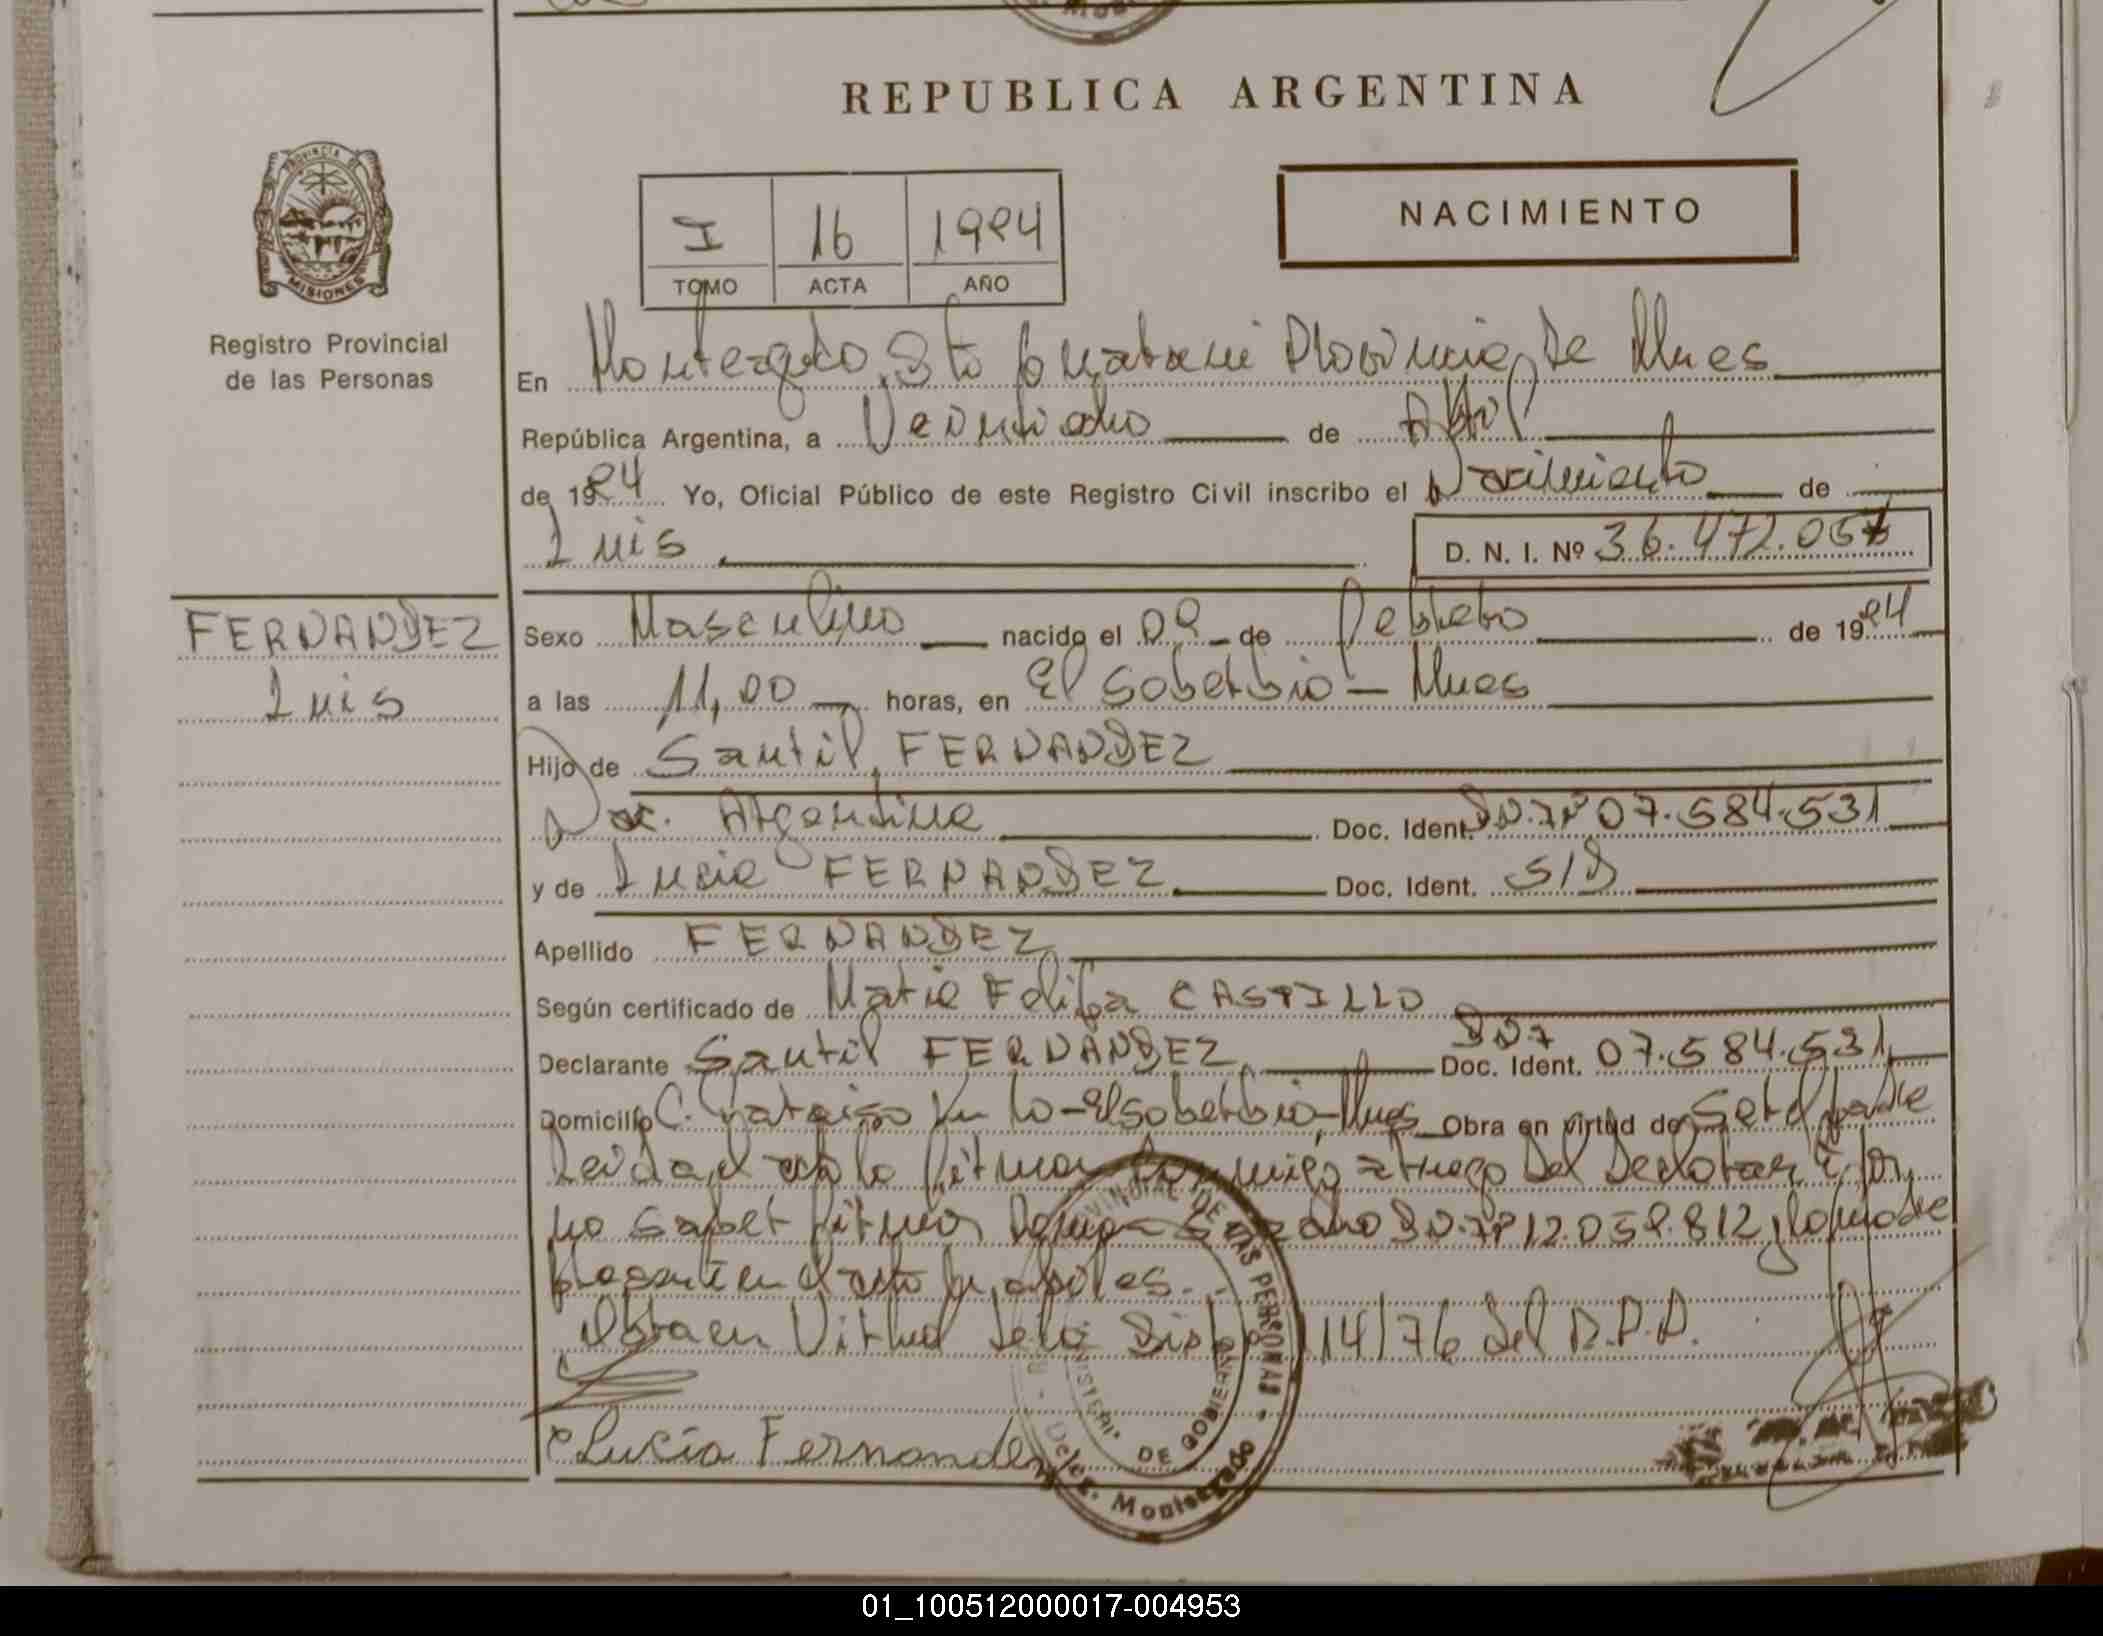 REPUBLICA ARGENTINA
PROVINCIA DE
MISIONES
Registro Provincial
de las Personas
I 16 1984
TOMO ACTA AÑO
NACIMIENTO
En Monteagudo, Gto Guaraní Provincia De Mnes
República Argentina, a Veintiocho de Abril
de 1984 Yo, Oficial Público de este Registro Civil inscribo el Nacimiento de
Luis D. N. I. Nº 36.472.05
FERNANDEZ
Luis
Sexo Masculino nacido el 09 de Febrero de 1984
a las 11,00 horas, en El Soberbio - Mnes
Hijo de Santil, FERNANDEZ
Nac. Argentina Doc. Ident. DN.Iº 07.584.531
y de Lucia FERNANDEZ Doc. Ident. S/D
Apellido FERNANDEZ
Según certificado de Maria Felipa CASTILLO
Declarante Santil FERNANDEZ DNI Doc. Ident. 07.584.531
Domicilio C. Paraiso Km 10 - El Soberbio - Mnes Obra en virtud de Ser el padre
Leida el acta la firma conmigo a ruego Del Declarante por
no saber firmar DN.Iº 12.058.812 y la madre
presente en el acto
Obra en Virtud de la Disp 14/76 del R.P.P.
Lucía Fernandez
PROVINCIAL DE LAS PERSONAS
MINISTERIO DE GOBIERNO
Deleg. Monteagudo
01_100512000017-004953